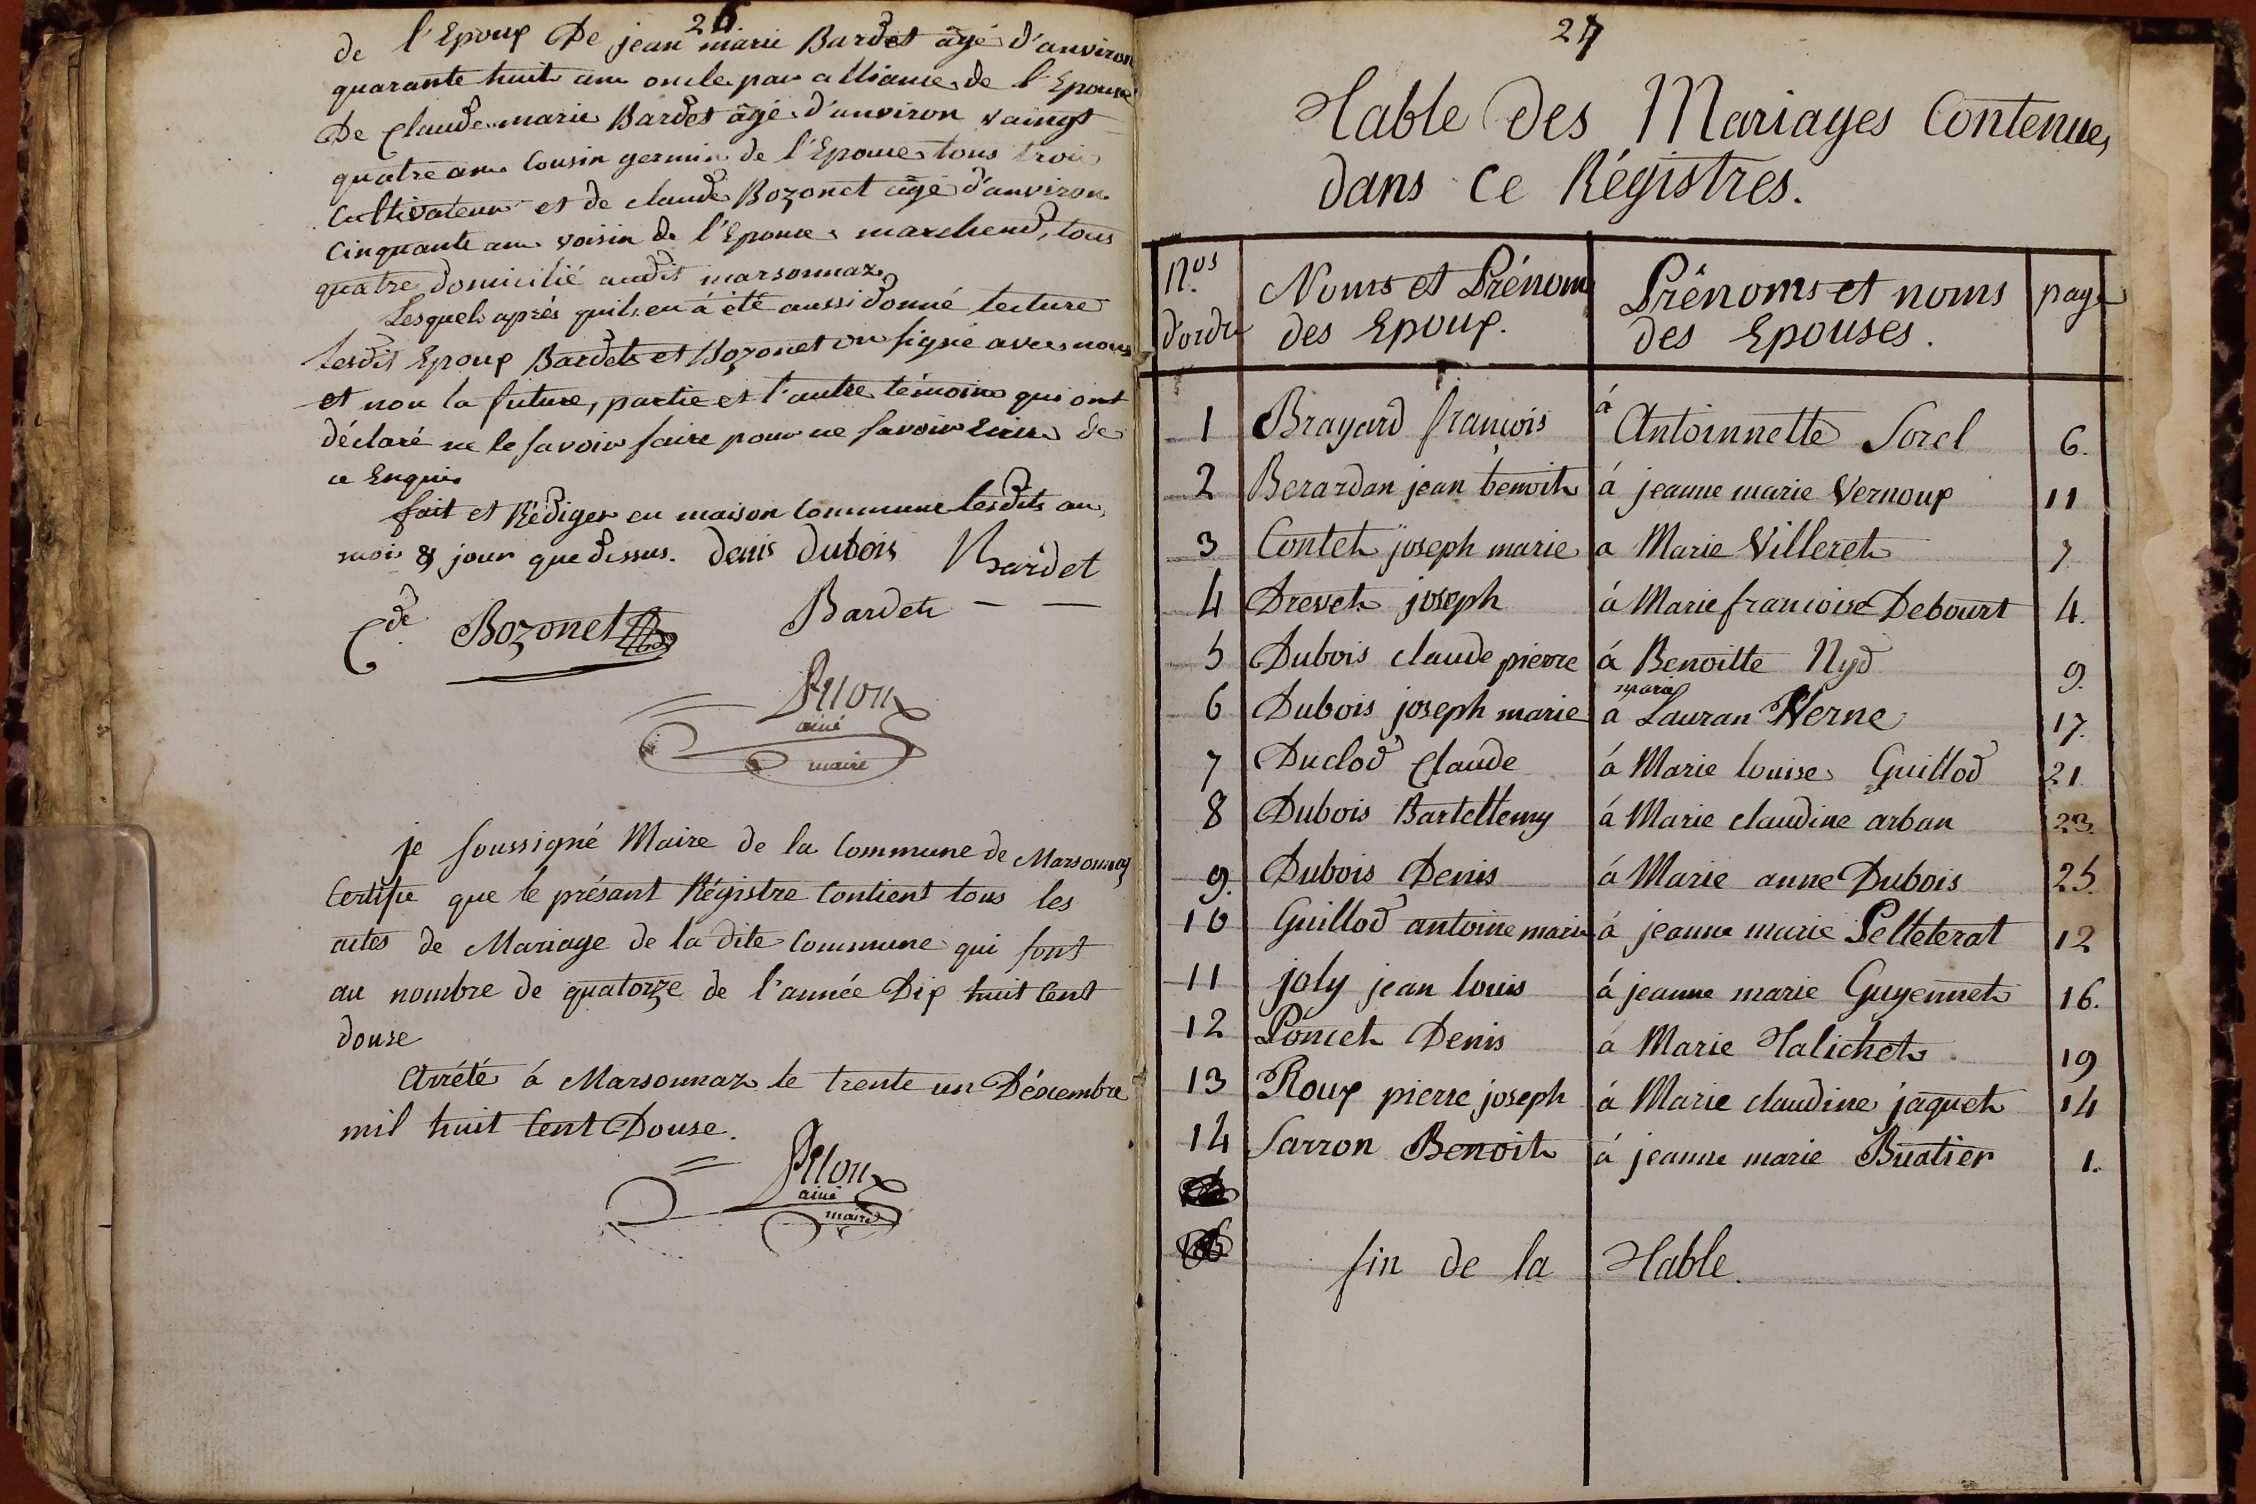 26
de l'Epoux De jean marie Bardet âgé d'anviron
quarante huit ans oncle par alliance de l'Epouse
De Claude marie Bardet âgé d'anviron vaingt
quatre ans Cousin germin de l'Epouse tous trois
Cultivateur et de claude Bozonet âgé d'anviron
Cinquante ans voisin de l'Epouse marchend, tous
quatre domicilié audit marsonnaz
Lesquels aprés quil en á été aussi donné lecture
lesdit Epoux Bardet et Bozonet on signé avec nous
et non la future, partie et l'autre témoins qui ont
déclaré ne le savoir faire pour ne savoir Ecrire de
ce Enquis
fait et Rédiger en maison Commune lesdits an,
mois & jour que dessus. denis dubois Bardet
Cde Bozonet Bardet — —
Pilon
ainé
maire
je soussigné Maire de la Commune de Marsonnaz
Certifie que le présant Régistre Contient tous les
actes de Mariage de la dite Commune qui sont
au nombre de quatorze de l'année Dix huit Cent
douse
Arrété á Marsonnaz le trente un Décembre
mil huit Cent Douse.
Pilon
ainé
maire
27
Table des Mariages Contenues
dans Ce Régistres.
N.os d'ordre | Noms et Prénoms des Epoux. | Prénoms et noms des Epouses. | page
1 Brayard francois á Antoinnette Sorel 6.
2 Berardan jean benoit á jeanne marie Vernoux 11
3 Contet joseph marie a Marie Villeret 7
4 Drevet joseph á Marie francoise Debourt 4.
5 Dubois claude pierre á Benoitte Nyd 9.
marie
6 Dubois joseph marie á Lauran Verne 17.
7 Duclod Claude á Marie louise Guillod 21
8 Dubois Bartellemy á Marie claudine arban 23.
9. Dubois Denis á Marie anne Dubois 25.
10 Guillod antoine marie á jeanne marie Pelleterat 12
11 joly jean louis á jeanne marie Guyennet 16.
12 Poncet Denis á Marie Talichet 19
13 Roux pierre joseph á Marie claudine jaquet 14
14 Sarron Benoit á jeanne marie Buatier 1.
fin de la Table.